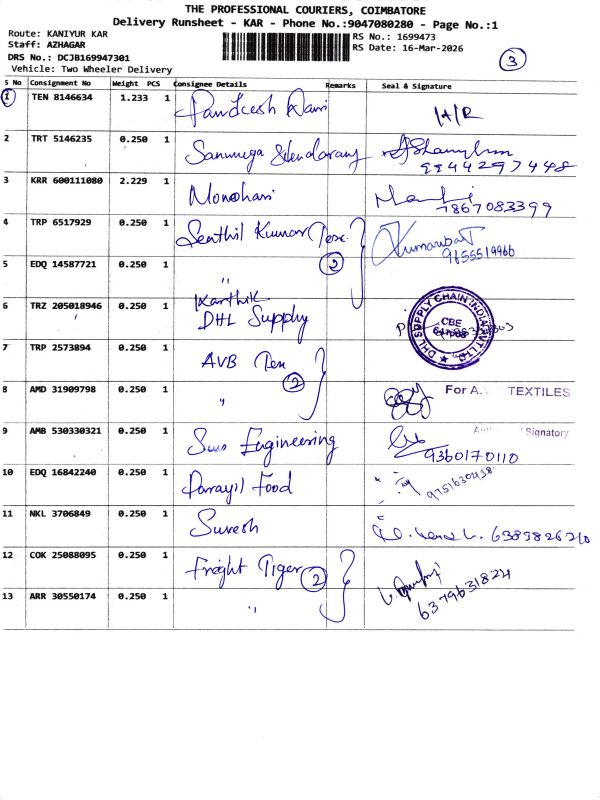 THE PROFESSIONAL COURIERS, COIMBATORE
Delivery Runsheet - KAR - Phone No.:9047080280 - Page No.:1
Route: KANIYUR KAR
Staff: AZHAGAR
DRS No.: DCJB169947301
Vehicle: Two Wheeler Delivery
RS No.: 1699473
RS Date: 16-Mar-2026
3
S No Consignment No Weight PCS Consignee Details Remarks Seal & Signature
1 TEN 8146634 1.233 1
2 TRT 5146235 0.250 1 Sanmuga
9944297498
3 KRR 600111080 2.229 1 Monohari
7867083399
4 TRP 6517929 0.250 1 Senthil Kumar Tex
9655519966
2
5 EDQ 14587721 0.250 1 "
6 TRZ 205018946 0.250 1 Karthik
DHL Supply
DHL SUPPLY CHAIN INDIA PVT LTD
CBE
7 TRP 2573894 0.250 1 AVB Tex
2
8 AMD 31909798 0.250 1 "
For A. TEXTILES
Signatory
9 AMB 530330321 0.250 1 Engineering
9360170110
10 EDQ 16842240 0.250 1 Parayil Food
9751630438
11 NKL 3706849 0.250 1 Suresh
6383826210
12 COK 25088095 0.250 1 Freight Tiger 2
6379631824
13 ARR 30550174 0.250 1 "